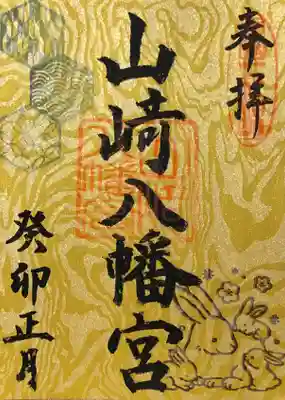 奉拝
山崎八幡宮
癸卯正月